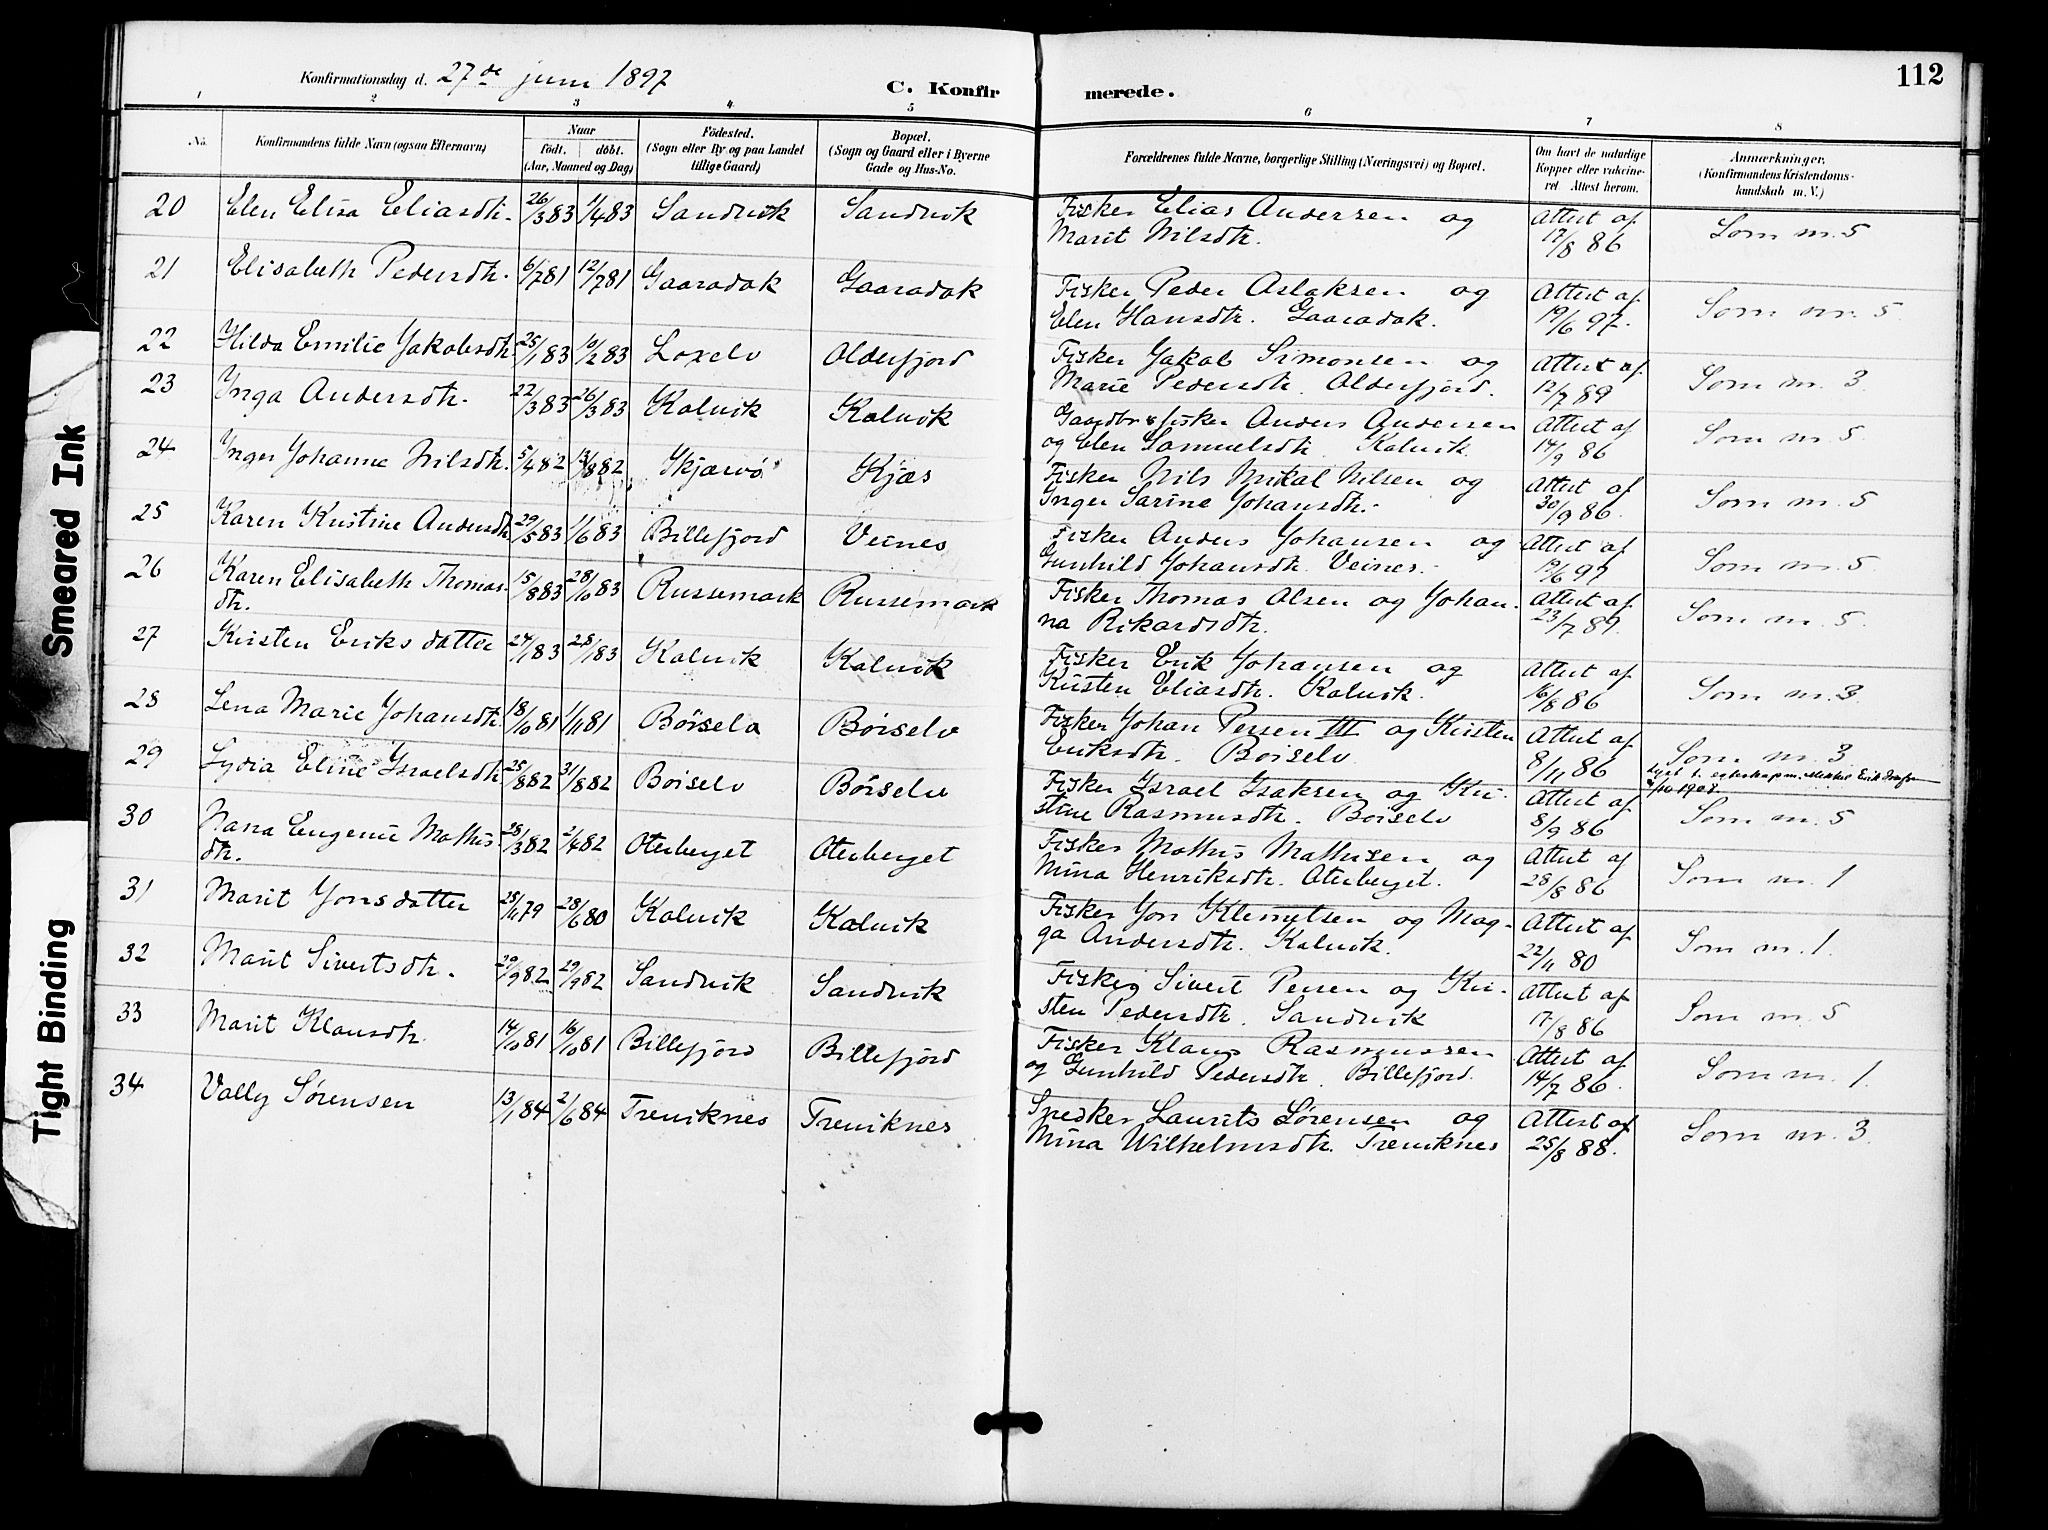 Konfirmationsdag d. 27de juni 1897
C. Konfirmerede.
112
1 2 3 4 5 6 7 8
No.
Konfirmandens fulde Navn (ogsaa Efternavn)
Naar
født. døbt.
(Aar, Maaned og Dag)
Fødested.
(Sogn eller By og paa Landet
tillige Gaard)
Bopæl.
(Sogn og Gaard eller i Byerne
Gade og Hus-No.
Forældrenes fulde Navne, borgerlige Stilling (Næringsvei) og Bopæl.
Om havt de naturlige
Kopper eller vakcine-
ret Attest herom.
Anmærkninger.
(Konfirmandens Kristendoms-
kundskab m. V.)
20 Elen Elisa Eliasdtr. 26/3 83 1/4 83 Sandvik Sandvik Fisker Elias Andersen og
Marit Nilsdtr. Attest af 17/8 86 Som nr. 5
21 Elisabeth Pedersdtr. 6/7 81 12/7 81 Gaaradak Gaaradak Fisker Peder Aslaksen og
Elen Hansdtr. Gaaradak. Attest af 19/6 97. Som nr. 5
22 Hilda Emilie Jakobsdtr. 25/1 83 10/2 83 Loxelv Oldefjord Fisker Jakob Simonsen og
Marie Pedersdtr. Oldefjord. Attest af 12/7 89 Som nr. 3
23 Inga Andersdtr. 22/3 83 26/3 83 Kalvik Kalvik Gaardbr. & fisker Anders Andersen
og Elen Samuelsdtr. Kalvik. Attest af 14/9 86 Som nr. 5
24 Inger Johanne Nilsdtr. 5/4 82 13/8 82 Skjærvø Kjæs Fisker Nils Mikal Nilsen og
Inger Sarine Johansdtr. Attest af 30/9 86. Som nr. 5
25 Karen Kristine Andersdtr. 29/5 83 1/6 83 Billefjord Veines Fisker Anders Johansen og
Gunhild Johansdtr. Veines. Attest af 19/6 97 Som nr. 5
26 Karen Elisabeth Thomas-
dtr. 15/8 83 28/10 83 Russemark Russemark Fisker Thomas Olsen og Johan-
na Rikardsdtr. Attest af 23/7 89. Som nr. 5
27 Kirsten Eriksdatter 24/1 83 28/1 83 Kalvik Kalvik Fisker Erik Johansen og
Kirsten Eliasdtr. Kalvik. Attest af 16/8 86 Som nr. 3
28 Lena Marie Johansdtr. 18/10 81 1/11 81 Børselv Børselv Fisker Johan Persen III og Kirsten
Eriksdtr. Børselv Attest af 8/11 86 Som nr. 3
29 Lydia Eline Israelsdtr. 25/8 82 31/8 82 Børselv Børselv Fisker Israel Isaksen og Kri-
stine Rasmusdtr. Børselv Attest af 8/9 86 Lyst t. egteskap m. Mikkel Erik
/10 1908. Som nr. 5
30 Nana Eugenie Mathis-
dtr. 28/3 82 2/4 82 Oterberget Oterberget Fisker Mathis Mathisen og
Mina Henriksdtr. Oterberget. Attest af 28/8 86 Som nr. 1
31 Marit Jonsdatter 25/11 79 28/6 80 Kalvik Kalvik Fisker Jon Klemetsen og Mag-
ga Andersdtr. Kalvik. Attest af 22/11 80 Som nr. 1.
32 Marit Sivertsdtr. 29/9 82 29/9 82 Sandvik Sandvik Fisker Sivert Persen og Kir-
sten Pedersdtr. Sandvik Attest af 17/8 86 Som nr. 5
33 Marit Klausdtr. 14/10 81 16/10 81 Billefjord Billefjord Fisker Klaus Rasmussen
og Gunhild Pedersdtr. Billefjord. Attest af 14/7 86. Som nr. 1.
34 Vally Sørensen 13/1 84 2/6 84 Treviknes Treviknes Snedker Laurits Sørensen og
Mina Wilhelmsdtr. Treviknes Attest af 25/8 88. Som nr. 3.
Smeared Ink
Tight Binding